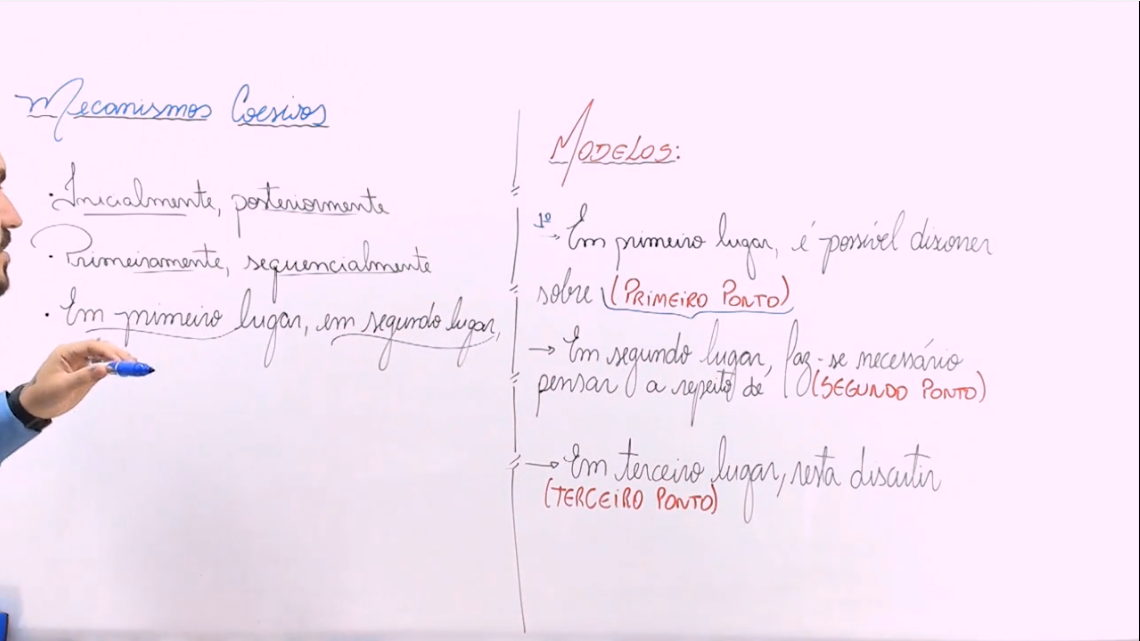 Mecanismos Coesivos
· Inicialmente, posteriormente
· Primeiramente, sequencialmente
· Em primeiro lugar, em segundo lugar,
MODELOS:
1º
→ Em primeiro lugar, é possível discorrer
sobre (PRIMEIRO PONTO)
→ Em segundo lugar, faz-se necessário
pensar a repeito de (SEGUNDO PONTO)
→ Em terceiro lugar, resta discutir
(TERCEIRO PONTO)